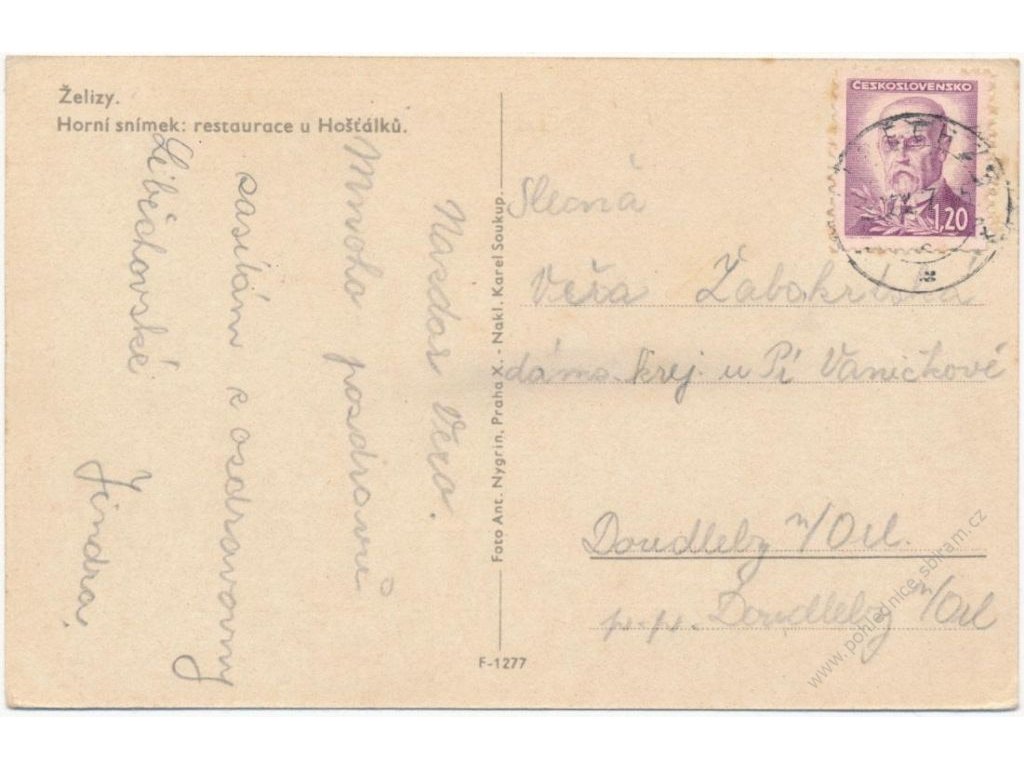 Želizy.
Horní snímek: restaurace u Hošťálků.
Nazdar Vero.
Mnoho pozdravů
zasílám z ozdravovny
Liběchovské
Jindra.
Foto Ant. Nygrin, Praha X. - Nakl. Karel Soukup.
F-1277
ČESKOSLOVENSKO
1,20
Slečná
Věra Žabokrtská
dáms. krej u Pí Vaničkové
Doudleby n/Orl.
p.p. Doudleby n/Orl
www.pohlednice-sbiram.cz